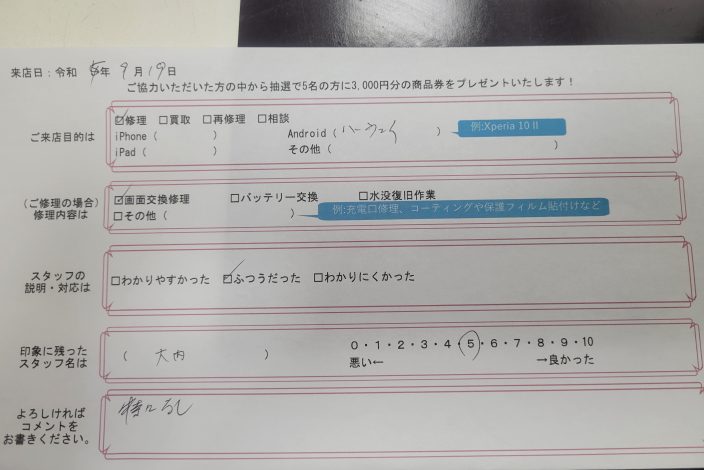 来店日：令和 5年 9月 19日
ご協力いただいた方の中から抽選で5名の方に3,000円分の商品券をプレゼントいたします！
ご来店目的は
☑修理 □買取 □再修理 □相談
iPhone（ ） Android（ ハーウェイ ） 例:Xperia 10 II
iPad（ ） その他（ ）
（ご修理の場合）
修理内容は
☑画面交換修理 □バッテリー交換 □水没復旧作業
□その他（ ） 例:充電口修理、コーティングや保護フィルム貼付けなど
スタッフの
説明・対応は
□わかりやすかった ☑ふつうだった □わかりにくかった
印象に残った
スタッフ名は
（ 大内 ）
0・1・2・3・4・5・6・7・8・9・10
悪い← →良かった
よろしければ
コメントを
お書きください。
特になし